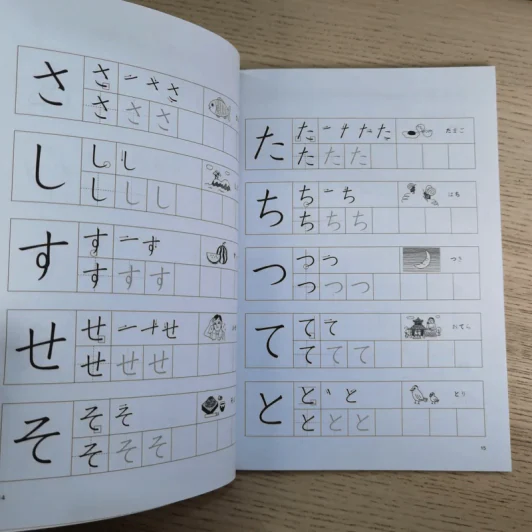 さ さ さ
さ さ さ
し し し
し し し
す す す
す す す
せ せ せ
せ せ せ
そ そ そ
そ そ そ
た た た たまご
た た た
ち ち ち はち
ち ち ち
つ つ つ つき
つ つ つ
て て て おてら
て て て
と と と とり
と と と
15